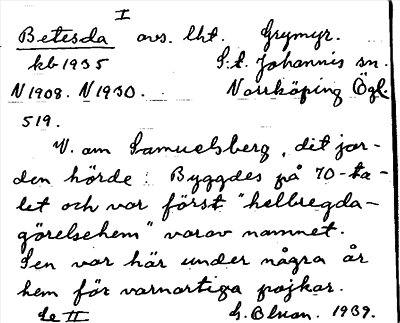 I
Betesda avs. lht. Grymyr.
kb 1935 S:t Johannis sn.
N 1908. N 1930. Norrköping Ögl.
519.
V. om Samuelsberg, dit jor-
den hörde. Byggdes på 70-ta-
let och var först "helbregda-
görelsehem" varav namnet.
Sen var här under några år
hem för vanartiga pojkar.
Se II G. 1939.